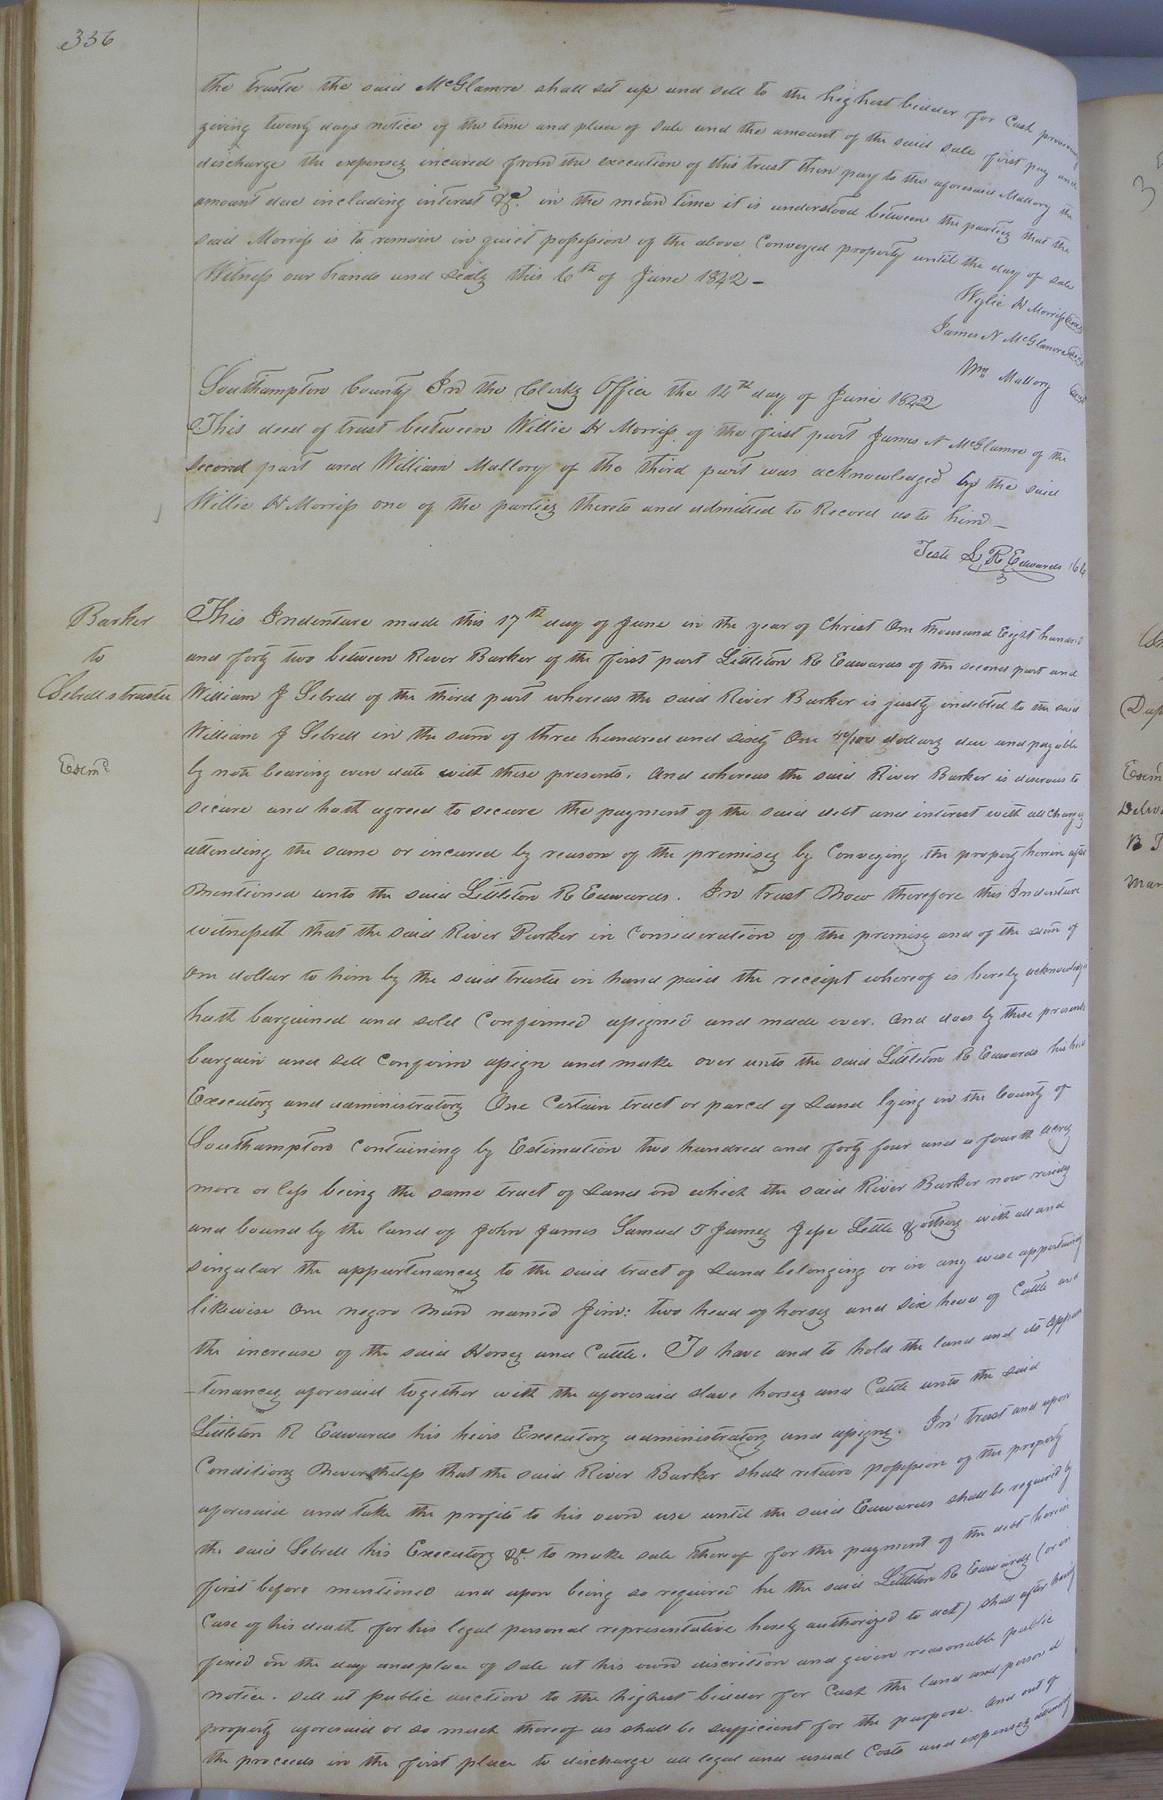 336
the trustee the said McGlamre shall set up and sell to the highest bidder for Cash previously
giving twenty days notice of the time and place of sale and the amount of the said sale first pay and
discharge the expenses incured from the execution of this trust then pay to the aforesaid Mallory the
amount due including interest &c. in the mean time it is understood between the parties that the
said Morriss is to remain in quiet possession of the above Conveyed property until the day of sale
Witness our hands and seals this 6th of June 1842 –
Wylie H Morriss Seal
James N McGlamre Seal
Wm Mallory Seal
Southampton County In the Clerks Office the 14th day of June 1842
This deed of trust between Willie H Morriss of the first part James N McGlamre of the
second part and William Mallory of the third part was acknowledged by the said
Willie H Morriss one of the parties thereto and admitted to Record as to him –
Teste L. R. Edwards
Barker
to
Sebrell & trustee
Exmd
This Indenture made this 17th day of June in the year of Christ One thousand Eight hundred
and forty two between River Barker of the first part Littleton R Edwards of the second part and
William J Sebrell of the third part whereas the said River Barker is justly indebted to the said
William J Sebrell in the sum of three hundred and sixty One /100 dollars due and payable
by note bearing even date with these presents. And whereas the said River Barker is desirous to
secure and hath agreed to secure the payment of the said debt and interest with all charges
attending the same or incured by reason of the premises by Conveying the property herein after
mentioned unto the said Littleton R Edwards. In trust Now therefore this Indenture
witnesseth that the said River Barker in Consideration of the premises and of the sum of
one dollar to him by the said trustee in hand paid the receipt whereof is hereby acknowledged
hath bargained and sold Confirmed assigned and made over. And does by these presents
bargain and sell Confirm assign and make over unto the said Littleton R Edwards his heirs
Executors and administrators One Certain tract or parcel of Land lying in the County of
Southampton Containing by Estimation two hundred and forty four and a fourth acres
more or less being the same tract of Land on which the said River Barker now resides
and bound by the land of John James Samuel T James Jesse Little & others with all and
singular the appurtenances to the said tract of Land belonging or in any wise appertaining
likewise One negro man named Jim: two head of horses and six head of Cattle and
the increase of the said Horses and Cattle. To have and to hold the land and its appur
-tenances aforesaid together with the aforesaid slave horses and Cattle unto the said
Littleton R Edwards his heirs Executors administrators and assigns. In trust and upon
Conditions Nevertheless that the said River Barker shall retain possession of the property
aforesaid and take the profits to his own use until the said Edwards shall be required by
the said Sebrell his Executors &c. to make sale thereof for the payment of the debt herein
first before mentioned and upon being so required he the said Littleton R Edwards (or in
Case of his death for his legal personal representative hereby authorized to act) shall after having
fixed on the day and place of sale at his own discretion and given reasonable public
notice. sell at public auction to the highest bidder for Cash the land and personal
property aforesaid or so much thereof as shall be sufficient for the purpose. And out of
the proceeds in the first place to discharge all legal and usual Costs and expenses attending